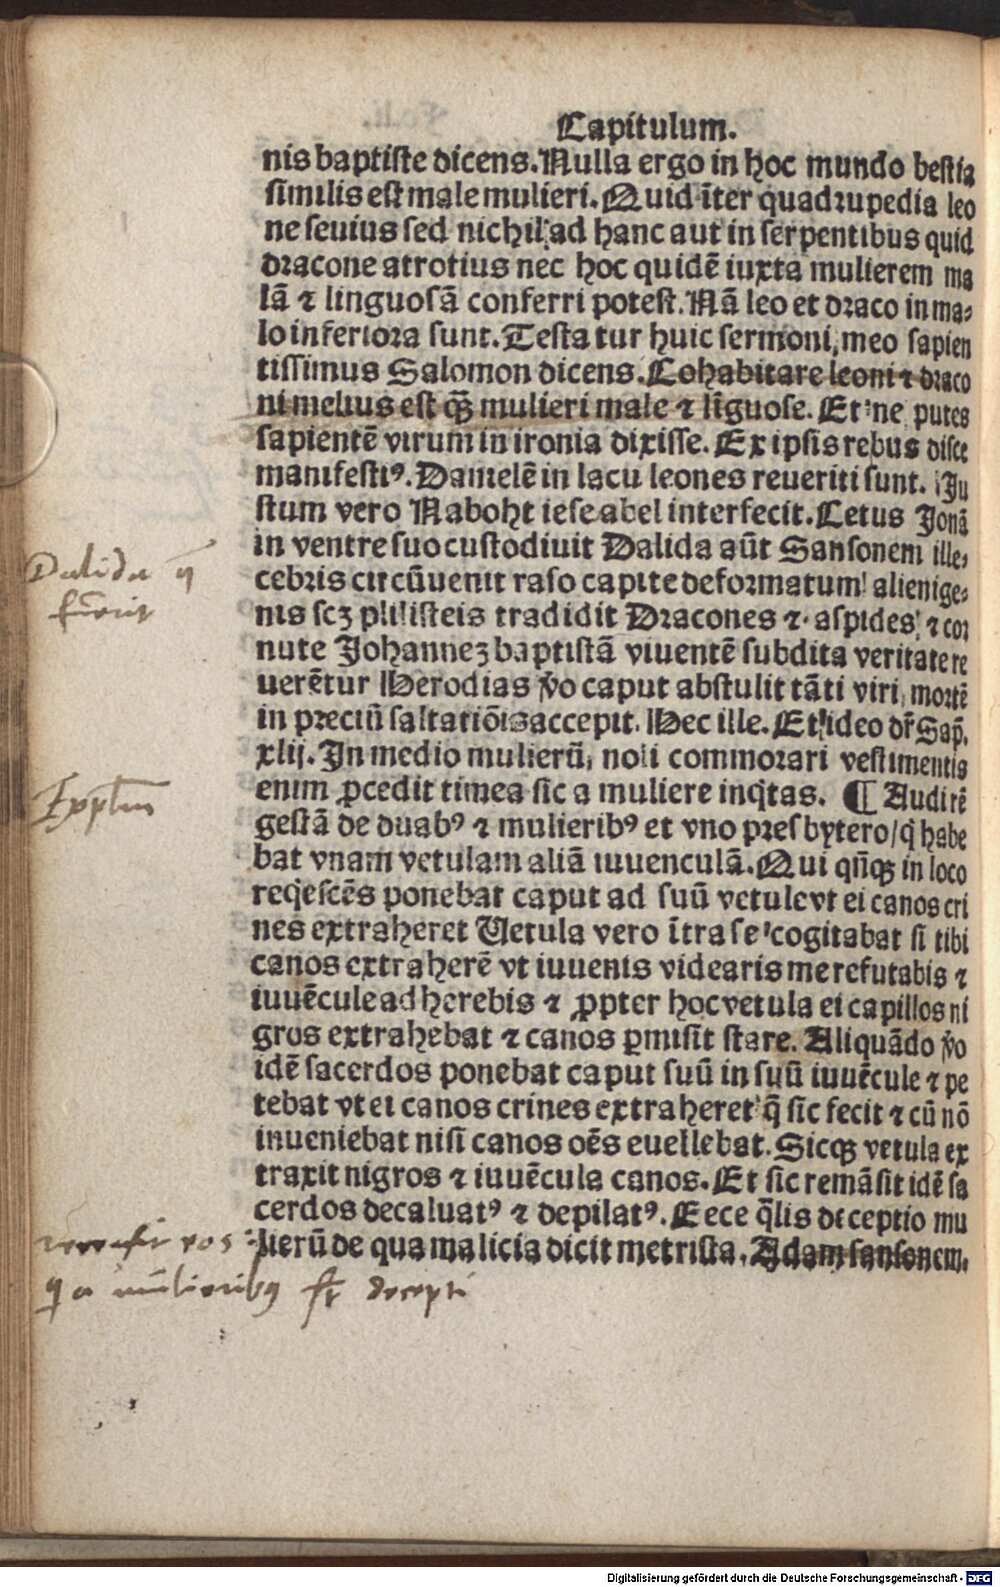 Capitulum.
nis baptiste dicens. Nulla ergo in hoc mundo bestia
similis est male mulieri. Quid īter quadrupedia leo
ne seuius sed nichil ad hanc aut in serpentibus quid
dracone atrotius nec hoc quidē iuxta mulierem ma
lā ⁊ linguosā conferri potest. Nā leo et draco in ma-
lo inferiora sunt. Testa tur huic sermoni meo sapien
tissimus Salomon dicens. Cohabitare leoni ⁊ draco
ni melius est qȝ mulieri male ⁊ līguose. Et ne putes
sapientē virum in ironia dixisse. Ex ipsis rebus disce
manifestiꝰ. Danielē in lacu leones reueriti sunt. Ju
stum vero Naboht ieseabel interfecit. Cetus Jonā
in ventre suo custodiuit Dalida aūt Sansonem ille-
Dalida q̄
cebris circūuenit raso capite deformatum alienige-
fuerit
nis scȝ philisteis tradidit Dracones ⁊ aspides ⁊ cor
nute Johanneȝ baptistā viuentē subdita veritate re
uerētur Herodias v̄o caput abstulit tāti viri mortē
in preciū saltatiōis accepit. Hec ille. Et ideo dr̄ Sap̄.
xlij. In medio mulierū noli commorari vestimentis
Exp̄lm
enim ꝓcedit timea sic a muliere inq̇tas. ¶ Audi rē
gestā de duabꝰ ⁊ mulieribꝰ et vno presbytero/ q̇ habe
bat vnam vetulam aliā iuuenculā. Qui qn̄qȝ in loco
reqescēs ponebat caput ad suū vetule vt ei canos cri
nes extraheret Vetula vero ītra se cogitabat si tibi
canos extraherē vt iuuenis videaris me refutabis ⁊
iuuēcule adherebis ⁊ ꝓpter hoc vetula ei capillos ni
gros extrahebat ⁊ canos ꝑmisit stare. Aliquādo v̄o
idē sacerdos ponebat caput suū in suū iuuēcule ⁊ pe
tebat vt ei canos crines extraheret q̄ sic fecit ⁊ cū nō
inueniebat nisi canos oēs euellebat. Sicqȝ vetula ex
traxit nigros ⁊ iuuēcula canos. Et sic remāsit idē sa
cerdos decaluatꝰ ⁊ depilatꝰ. Ecce q̄lis deceptio mu
lierū de qua malicia dicit metrista. Adam sansonem.
vos
q a mulieribꝰ decepti
Digitalisierung gefördert durch die Deutsche Forschungsgemeinschaft - DFG